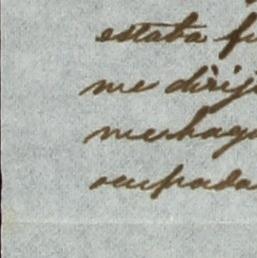 estaba fu
me dirij
me haga
ocupada